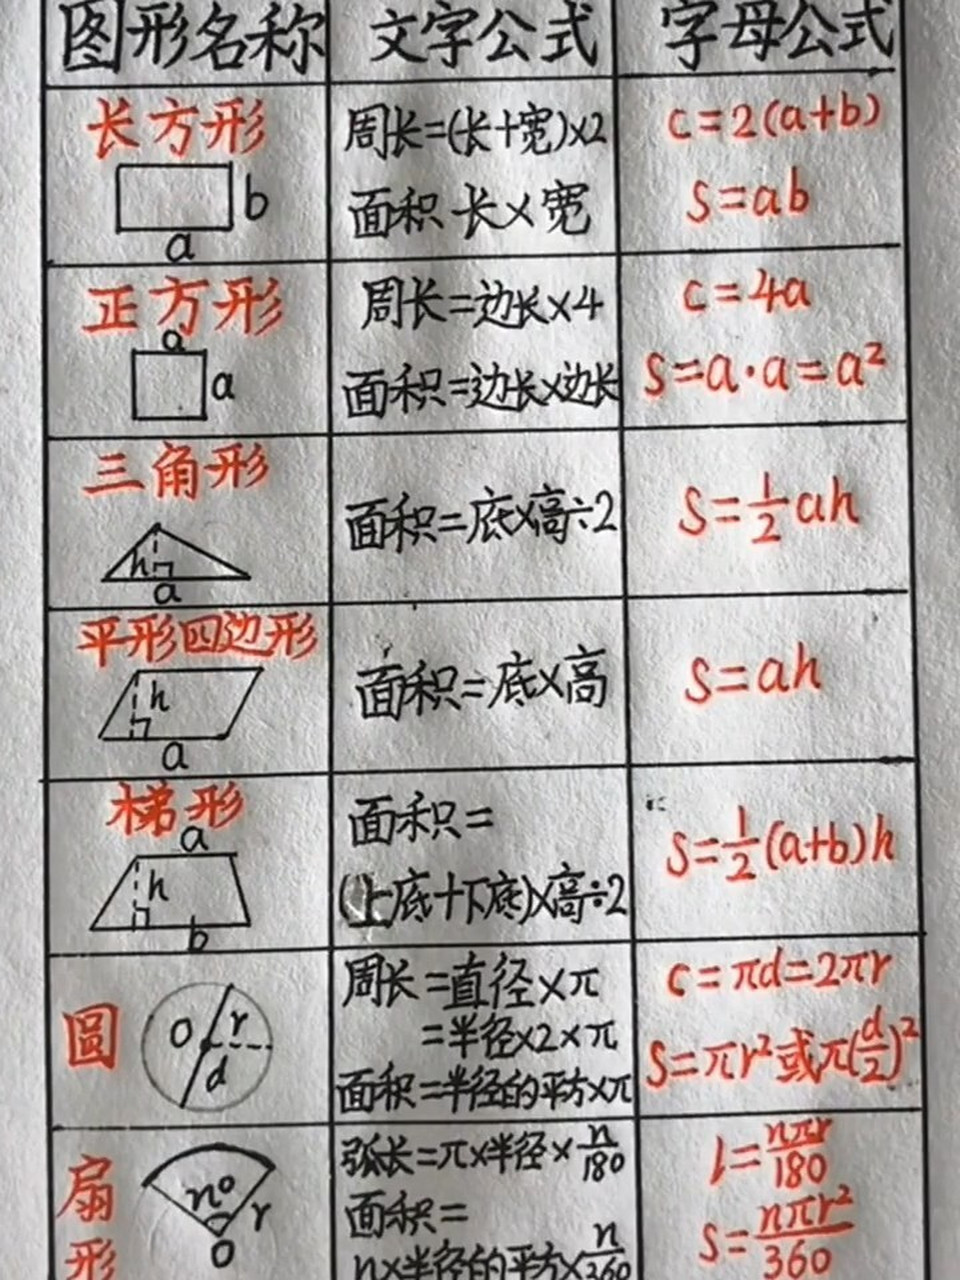 图形名称 文字公式 字母公式
长方形 周长=(长+宽)×2 c=2(a+b)
b 面积 长×宽 s=ab
a
正方形 周长=边长×4 c=4a
a
a 面积=边长×边长 s=a·a=a²
三角形
h 面积=底×高÷2 s=1/2ah
a
平形四边形
h 面积=底×高 s=ah
a
梯形 面积=
a
h (上底+下底)×高÷2 s=1/2(a+b)h
b
圆 周长=直径×π c=πd=2πr
O r =半径×2×π
d 面积=半径的平方×π s=πr²或π(d/2)²
扇形 弧长=π×半径×n/180 l=nπr/180
n° r 面积= s=nπr²/360
O n×半径的平方×n/360